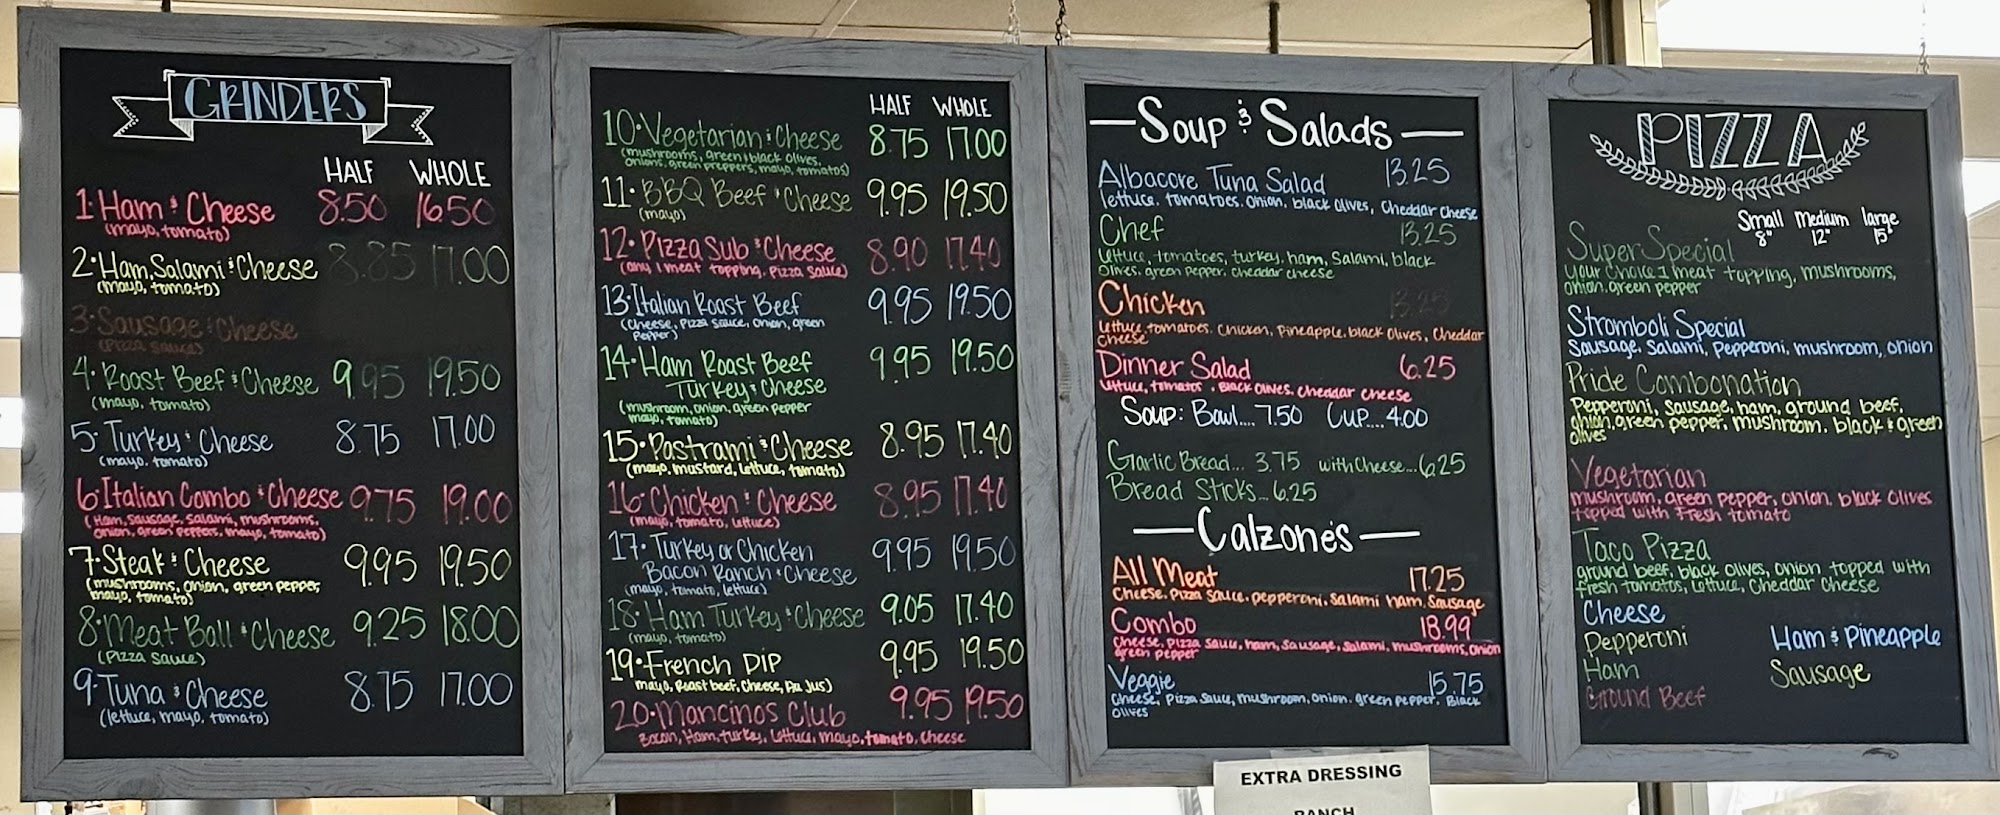 GRINDERS
HALF WHOLE
1. Ham & Cheese 8.50 16.50
(mayo, tomato)
2. Ham, Salami & Cheese 8.85 17.00
(mayo, tomato)
3. Sausage & Cheese
(pizza sauce)
4. Roast Beef & Cheese 9.95 19.50
(mayo, tomato)
5. Turkey & Cheese 8.75 17.00
(mayo, tomato)
6. Italian Combo & Cheese 9.75 19.00
(Ham, sausage, salami, mushrooms,
onion, green peppers, mayo, tomato)
7. Steak & Cheese 9.95 19.50
(mushrooms, onion, green pepper,
mayo, tomato)
8. Meat Ball & Cheese 9.25 18.00
(Pizza sauce)
9. Tuna & Cheese 8.75 17.00
(lettuce, mayo, tomato)
HALF WHOLE
10. Vegetarian & Cheese 8.75 17.00
(mushrooms, green & black olives,
onions, green preppers, mayo, tomatos)
11. BBQ Beef & Cheese 9.95 19.50
(mayo)
12. Pizza Sub & Cheese 8.90 17.40
(any 1 meat topping, pizza sauce)
13. Italian Roast Beef 9.95 19.50
(Cheese, Pizza sauce, onion, green
pepper)
14. Ham Roast Beef 9.95 19.50
Turkey & Cheese
(mushroom, onion, green pepper
mayo, tomato)
15. Pastrami & Cheese 8.95 17.40
(mayo, mustard, lettuce, tomato)
16. Chicken & Cheese 8.95 17.40
(mayo, tomato, lettuce)
17. Turkey or Chicken 9.95 19.50
Bacon Ranch & Cheese
(mayo, tomato, lettuce)
18. Ham Turkey & Cheese 9.05 17.40
(mayo, tomato)
19. French Dip 9.95 19.50
mayo, Roast beef, Cheese, Au Jus)
20. Mancinos Club 9.95 19.50
Bacon, Ham, turkey, lettuce, mayo, tomato, cheese
Soup & Salads
Albacore Tuna Salad 13.25
lettuce, tomatoes, onion, black olives, Cheddar Cheese
Chef 13.25
lettuce, tomatoes, turkey, ham, salami, black
olives, green pepper, cheddar cheese
Chicken 13.25
lettuce, tomatoes, chicken, pineapple, black olives, cheddar
cheese
Dinner Salad 6.25
lettuce, tomatos, Black olives, cheddar cheese
Soup: Bowl.... 7.50 Cup.... 4.00
Garlic Bread... 3.75 with Cheese... 6.25
Bread Sticks... 6.25
Calzones
All Meat 17.25
Cheese, Pizza sauce, pepperoni, salami ham, sausage
Combo 18.99
Cheese, Pizza sauce, ham, sausage, salami, mushrooms, onion
green pepper
Veggie 15.75
Cheese, Pizza sauce, mushroom, onion, green pepper, Black
olives
PIZZA
Small Medium large
8" 12" 15"
Super Special
Your Choice 1 meat topping, mushrooms,
onion, green pepper
Stromboli Special
Sausage, Salami, Pepperoni, mushroom, onion
Pride Combonation
Pepperoni, Sausage, ham, ground beef,
onion, green pepper, mushroom, black & green
olives
Vegetarian
mushroom, green pepper, onion, black olives
topped with Fresh tomato
Taco Pizza
ground beef, black olives, onion topped with
fresh tomatos, lettuce, cheddar cheese
Cheese
Pepperoni Ham & Pineapple
Ham Sausage
Ground Beef
EXTRA DRESSING
RANCH